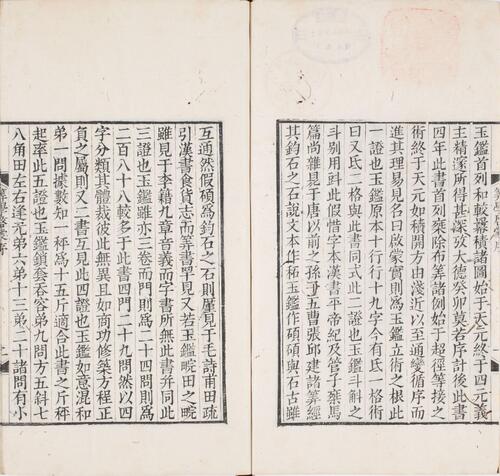 玉鑑首列和較冪積諸圖始于天元終于四元義
主精邃所得甚深攷大德癸卯莫若序計後此書
四年此書首列乘除布筭諸例始于超徑等接之
術終于天元如積開方由淺近以至通變循序而
進其理易見名曰啟蒙實則為玉鑑立術之根此
一證也玉鑑原本十行行十九字今有低一格術
曰又低二格與此書同式此二證也玉鑑斗斛之
斗别用㪷此假惜字本漢書平帝紀及管子乗馬
篇尚雜見于唐以前之孫子五曹張邱建諸筭經
其鈞石之石說文本作䄷玉鑑作碩碩與石古雖
互通然假碩為鈞石之石則厪見于毛詩甫田疏
引漢書食貨志而筭書罕見又若玉鑑畹田之畹
雖見于李籍九章音義而字書所無此書并同此
三證也玉鑑雖亦三卷而門則為二十四問則為
二百八十八較多于此書四門二十九問然以四
字分類其體裁彼此無異且如商功修築方程正
負之屬則又二書互見此四證也玉鑑如意混和
弟一問據數知一秤為十五斤適合此書之斤秤
起率此五證也玉鑑鎖套吞容弟九問方五斜七
八角田左右逢元弟六弟十三弟二十諸問有小